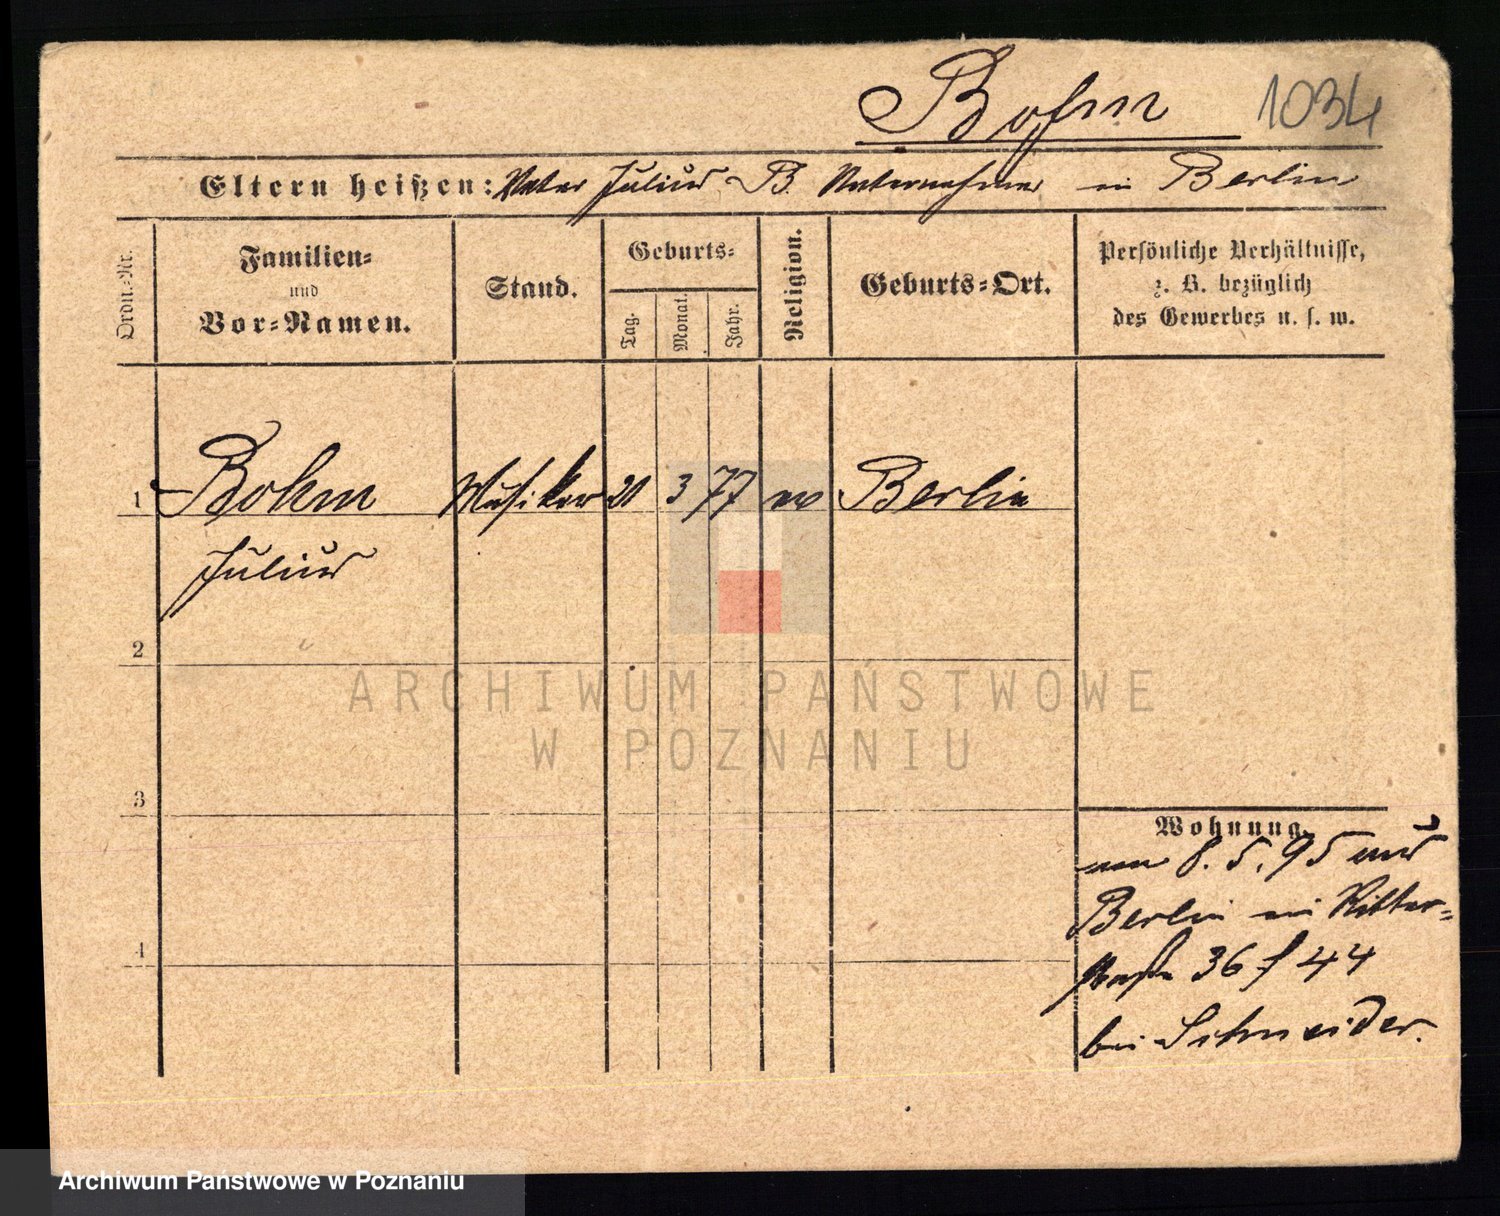 Bohm 1034
Eltern heißen: Vater Julius B. Unternehmer in Berlin
Ordn.-Nr.
Familien-
und
Vor-Namen.
Stand.
Geburts-
Tag.
Monat.
Jahr.
Religion.
Geburts-Ort.
Persönliche Verhältnisse,
z. B. bezüglich
des Gewerbes u. s. w.
1 Bohm Musiker 20 3 77 ev Berlin
Julius
2
3
4
Wohnung.
8.5.95 aus
Berlin in Ritter-
straße 36 44
bei Schneider.
ARCHIWUM PAŃSTWOWE
W POZNANIU
Archiwum Państwowe w Poznaniu